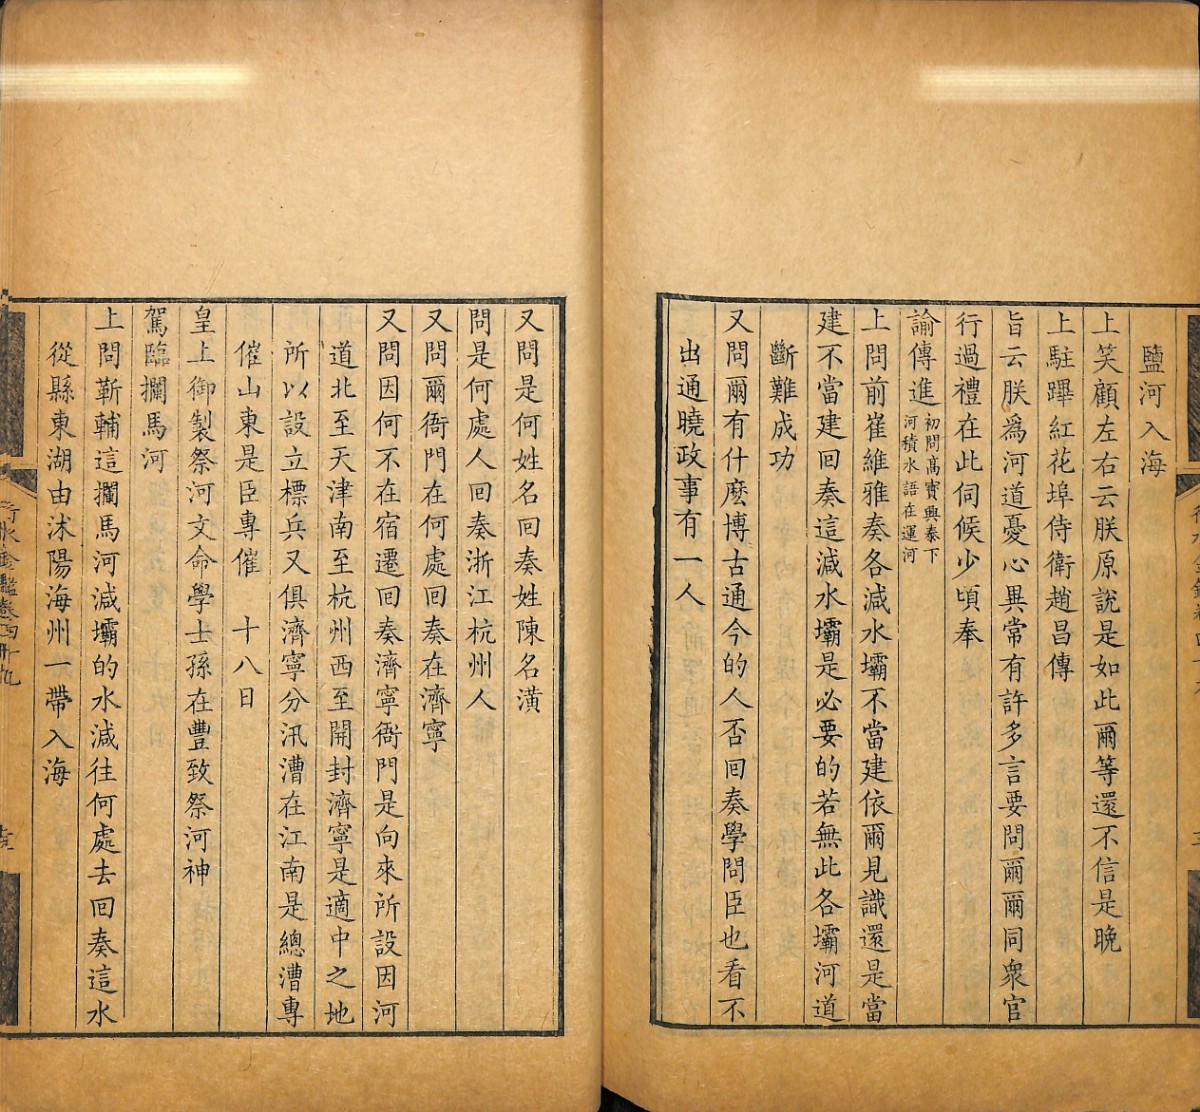 鹽河入海
上笑顧左右云朕原說是如此爾等還不信是晚
上駐蹕紅花埠侍衛趙昌傳
旨云朕爲河道憂心異常有許多言要問爾爾同衆官
行過禮在此伺候少頃奉
諭傳進初問高寶興泰下
河積水語在運河
上問前崔維雅奏各減水壩不當建依爾見識還是當
建不當建回奏這減水壩是必要的若無此各壩河道
斷難成功
又問爾有什麽博古通今的人否回奏學問臣也看不
出通曉政事有一人
又問是何姓名回奏姓陳名潢
問是何處人回奏浙江杭州人
又問爾衙門在何處回奏在濟寧
又問因何不在宿遷回奏濟寧衙門是向來所設因河
道北至天津南至杭州西至開封濟寧是適中之地
所以設立標兵又俱濟寧分汛漕在江南是總漕專
催山東是臣專催　十八日
皇上御製祭河文命學士孫在豐致祭河神
駕臨攔馬河
上問靳輔這攔馬河減壩的水減往何處去回奏這水
從縣東湖由沭陽海州一帶入海
行水金鑑卷四十九